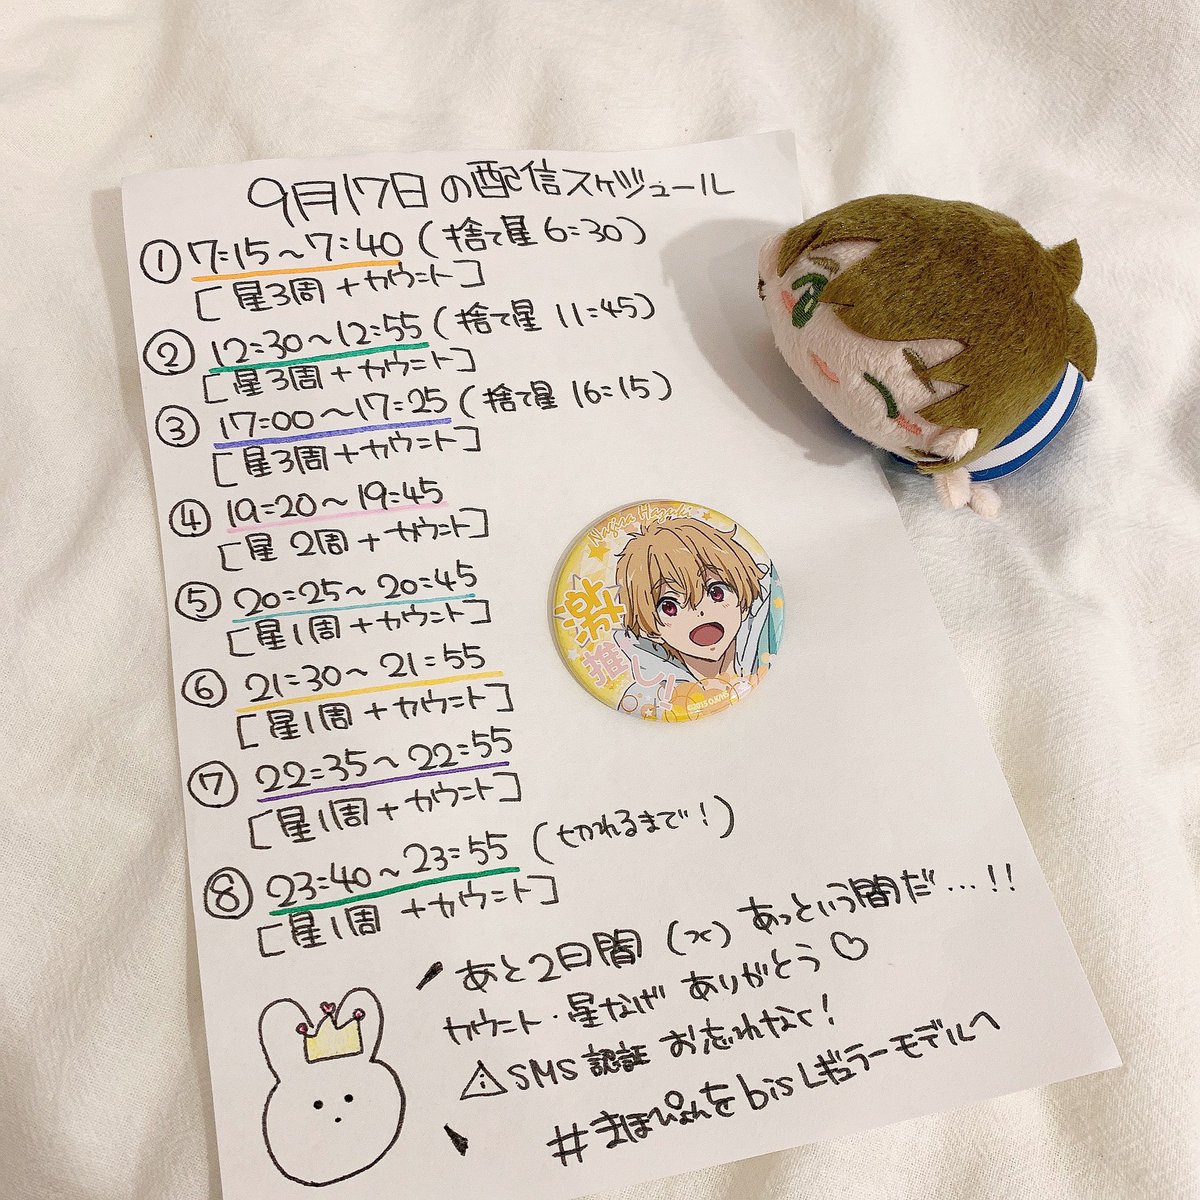 9月17日の配信スケジュール
① 7:15〜7:40 (捨て星 6:30)
[星3周+カウント]
② 12:30〜12:55 (捨て星 11:45)
[星3周+カウント]
③ 17:00〜17:25 (捨て星 16:15)
[星3周+カウント]
④ 19:20〜19:45
[星2周+カウント]
⑤ 20:25〜20:45
[星1周+カウント]
⑥ 21:30〜21:55
[星1周+カウント]
⑦ 22:35〜22:55
[星1周+カウント]
⑧ 23:40〜23:55 (切れるまで!)
[星1周+カウント]
あと2日間(x)あっという間だ...!!
カウント・星なげ ありがとう♡
⚠SMS認証 お忘れなく!
#まほぴょんをbisレギュラーモデルへ
Nagisa Hazuki
激
推し!